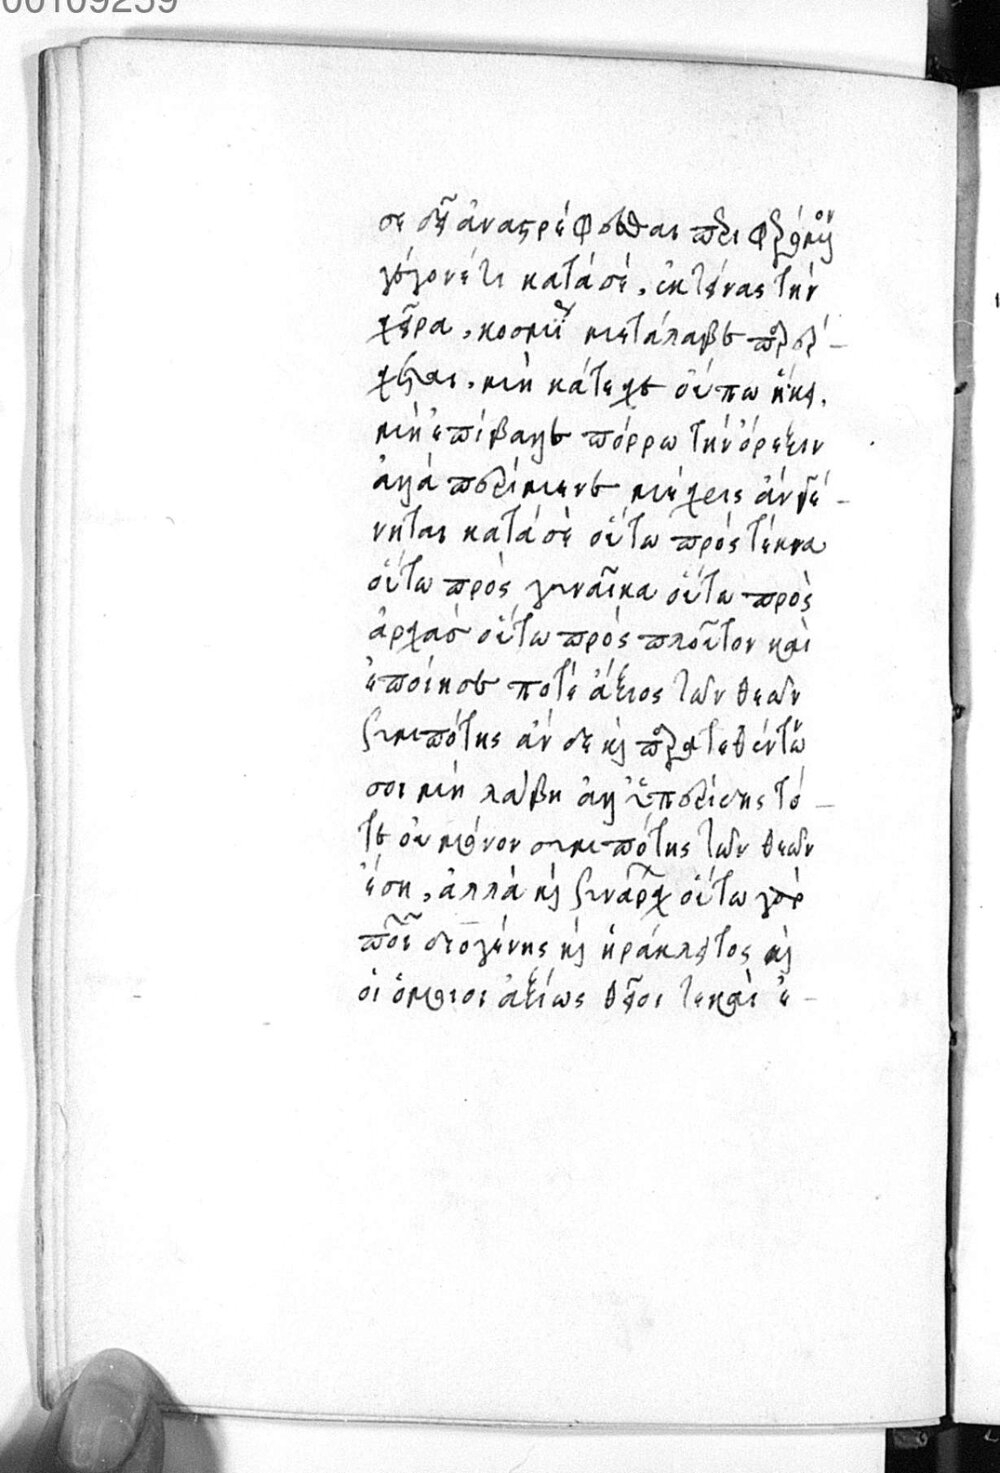 00109259
σε δεῖ ἀναστρέφεσθαι περιφερόμενον
γέγονέ τι κατὰ σέ, ἐκτείνας τὴν
χεῖρα, κοσμίως μετάλαβε παρέρ-
χεται, μὴ κάτεχε οὔπω ἥκει,
μὴ ἐπίβαλλε πόρρω τὴν ὄρεξιν
ἀλλὰ περίμενε μέχρις ἂν γέ-
νηται κατὰ σὲ οὕτω πρὸς τέκνα
οὕτω πρὸς γυναῖκα οὕτω πρὸς
ἀρχὰς οὕτω πρὸς πλοῦτον καὶ
ἔποίησε ποτὲ ἄξιος τῶν θεῶν
συμπότης ἂν δὲ καὶ παρατεθέντων
σοι μὴ λάβῃ ἀλλ' ὑπερίδῃς τό-
τε οὐ μόνον συμπότης τῶν θεῶν
ἔσῃ, ἀλλὰ καὶ συνάρχων οὕτω γὰρ
ποιῶν διογένης καὶ ἡράκλειτος καὶ
οἱ ὅμοιοι ἀξίως θεῖοι τε καὶ ἐ-